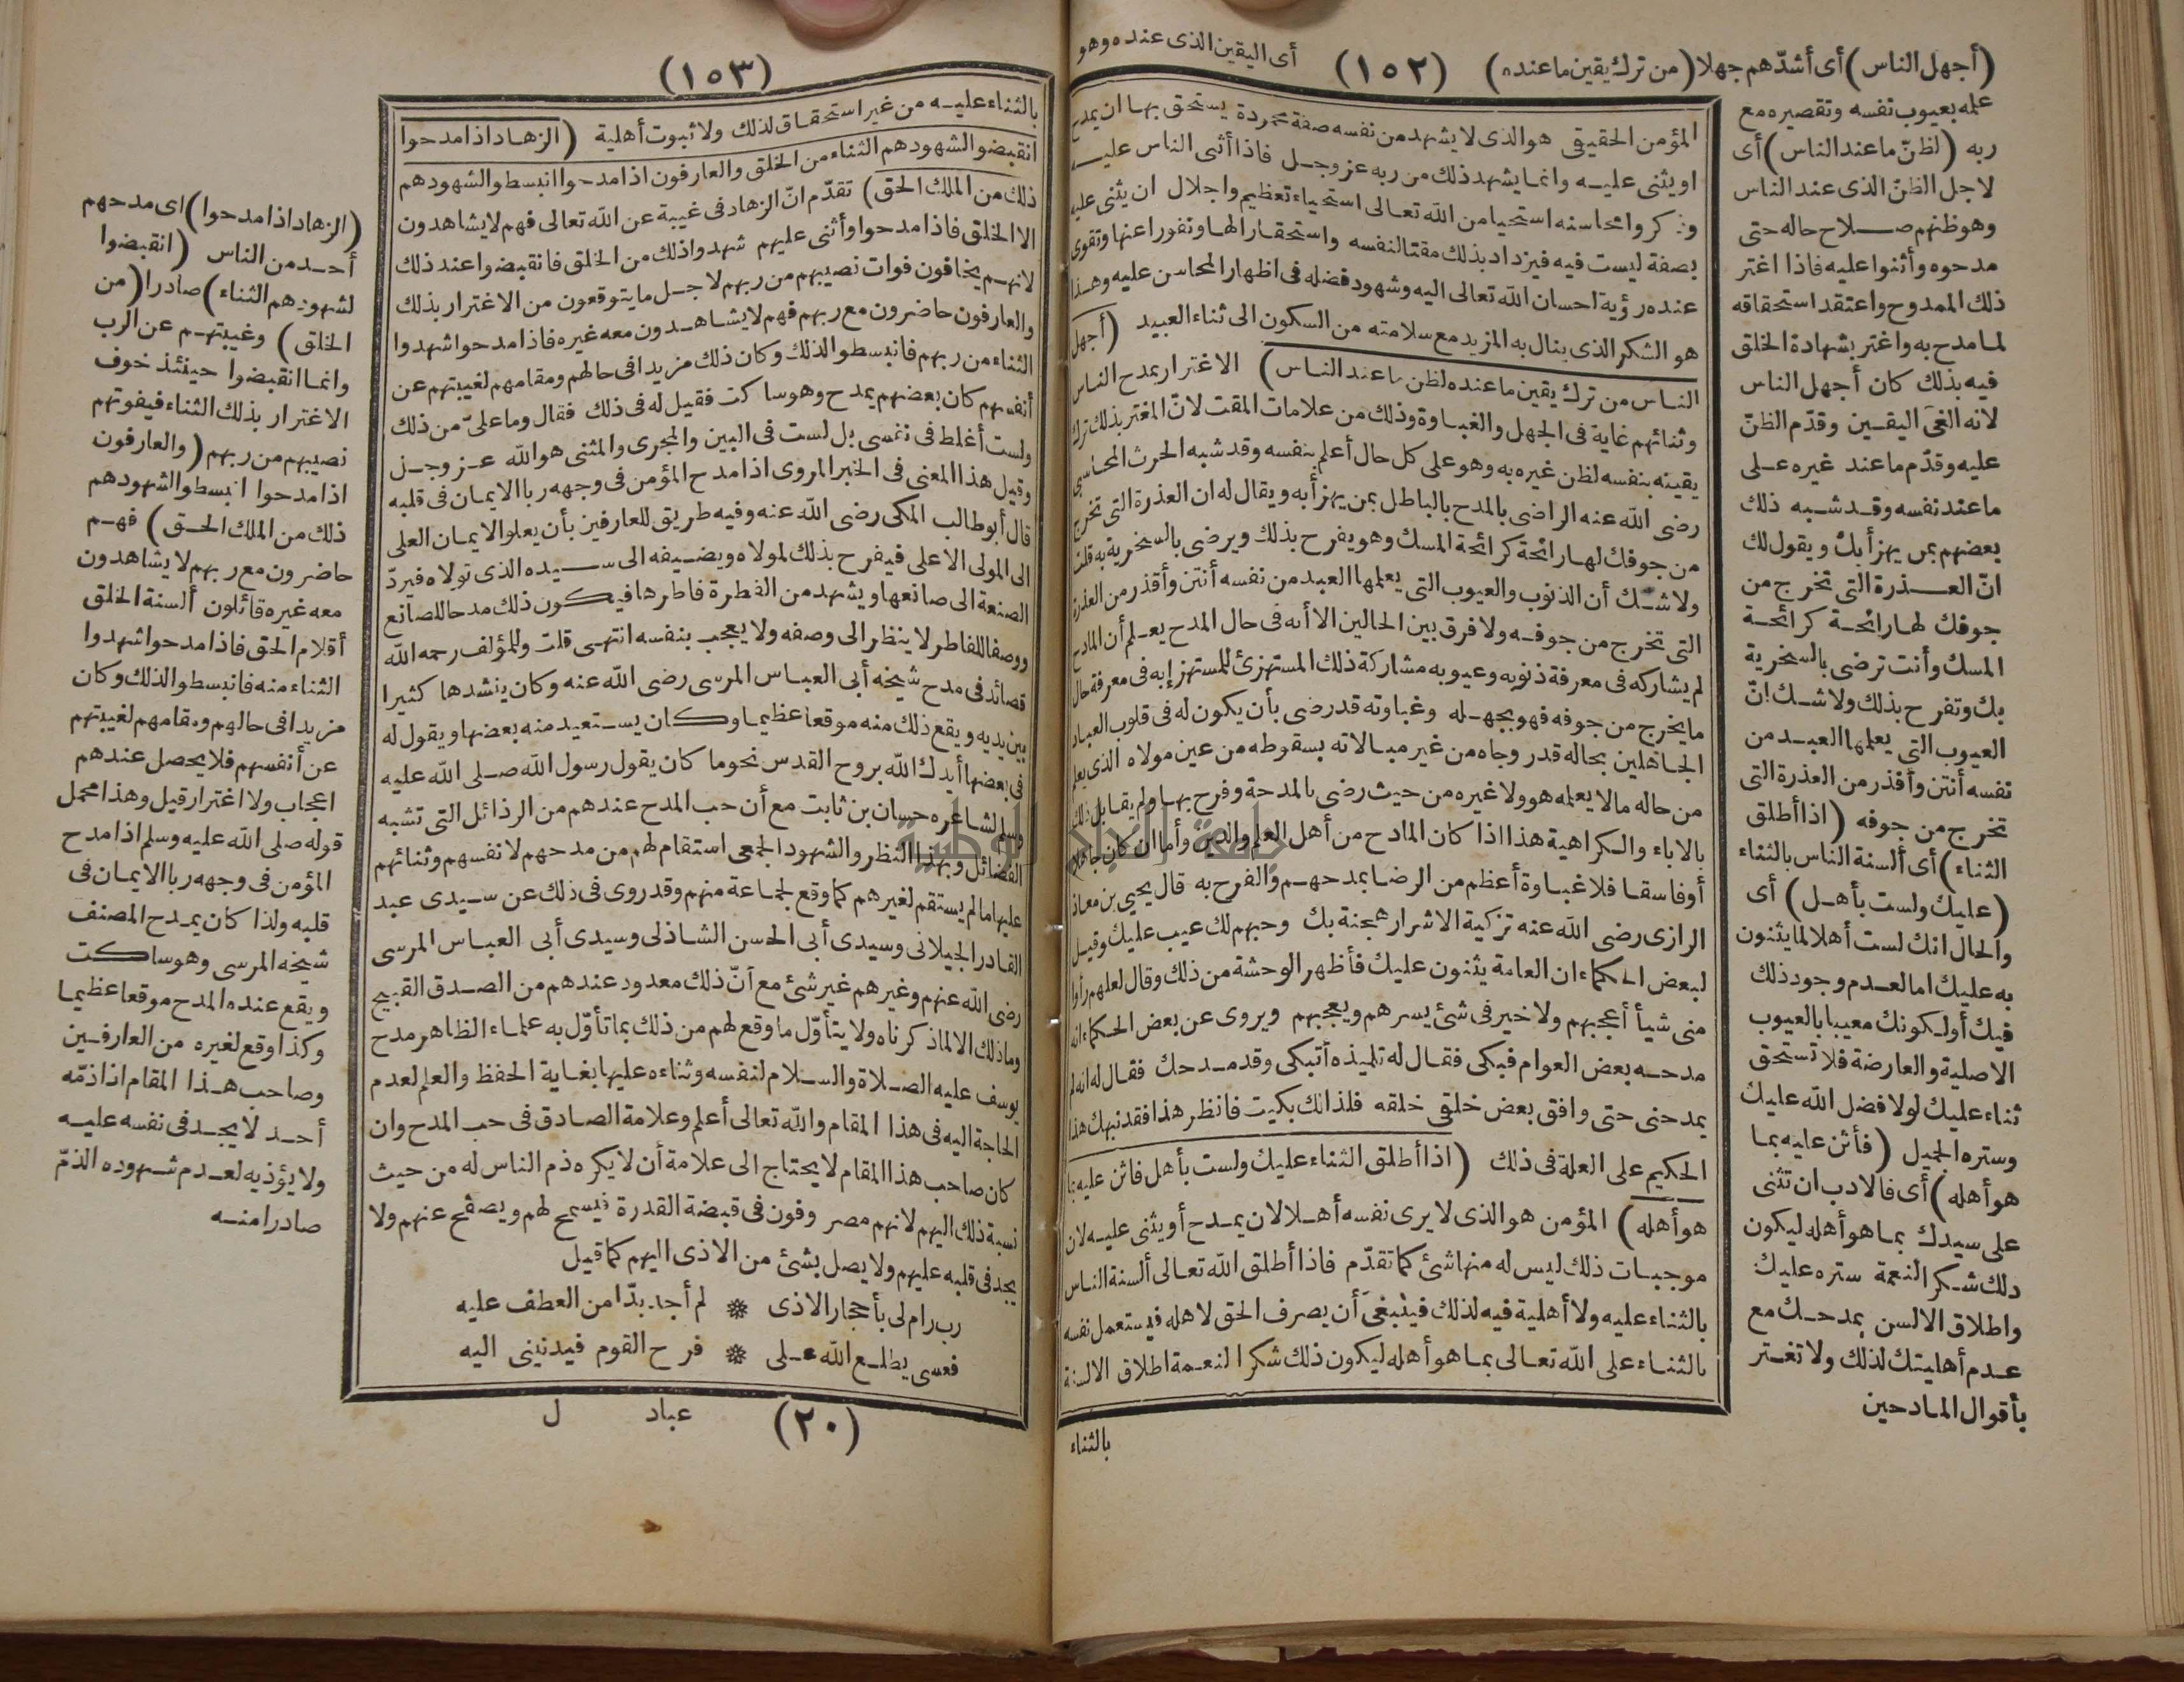 (أجهل الناس) أى أشدّهم جهلا (من ترك يقين ما عنده) (١٥٢) أى اليقين الذى عنده وهو
علمه بعيوب نفسه وتقصيره مع
ربه (لظنّ ما عند الناس) أى
لاجل الظنّ الذى عند الناس
وهو ظنهم صلاح حاله حتى
مدحوه وأثنوا عليه فاذا اغتر
ذلك الممدوح واعتقد استحقاقه
لما مدح به واغتر بشهادة الخلق
فيه بذلك كان أجهل الناس
لانه الغى اليقين وقدّم الظنّ
عليه وقدّم ما عند غيره على
ما عند نفسه وقد شبه ذلك
بعضهم بمن يهزأ بك ويقول لك
انّ العذرة التى تخرج من
جوفك لها رائحة كرائحة
المسك وأنت ترضى بالسخرية
بك وتفرح بذلك ولا شك انّ
العيوب التى يعلمها العبد من
نفسه أنتن وأقذر من العذرة التى
تخرج من جوفه (اذا أطلق
الثناء) أى ألسنة الناس بالثناء
(عليك ولست بأهل) أى
والحال انك لست أهلا لما يثنون
به عليك اما لعدم وجود ذلك
فيك أولكونك معيبا بالعيوب
الاصلية والعارضة فلا تستحق
ثناء عليك لولا فضل الله عليك
وستره الجميل (فأثن عليه بما
هو أهله) أى فالادب ان تثنى
على سيدك بما هو أهله ليكون
ذلك شكر النعمة ستره عليك
واطلاق الالسن بمدحك مع
عدم أهليتك لذلك ولا تغتر
بأقوال المادحين
المؤمن الحقيقى هو الذى لا يشهد من نفسه صفة محمودة يستحق بها ان يمدح
او يثنى عليه وانما يشهد ذلك من ربه عز وجل فاذا أثنى الناس عليه
وذكروا محاسنه استحيا من الله تعالى استحياء تعظيم واجلال ان يثنى عليه
بصفة ليست فيه فيزداد بذلك مقتا لنفسه واستحقارا لها ونفورا عنها وتقوى
عنده رؤية احسان الله تعالى اليه وشهود فضله فى اظهار المحاسن عليه وهذا
هو الشكر الذى ينال به المزيد مع سلامته من السكون الى ثناء العبيد (أجهل
الناس من ترك يقين ما عنده لظن ما عند الناس) الاغترار بمدح الناس
وثنائهم غاية فى الجهل والغباوة وذلك من علامات المقت لانّ المغتر بذلك ترك
يقينه بنفسه لظن غيره به وهو على كل حال أعلم بنفسه وقد شبه الحرث المحاسبى
رضى الله عنه الراضى بالمدح بالباطل بمن يهزأ به ويقال له ان العذرة التى تخرج
من جوفك لها رائحة كرائحة المسك وهو يفرح بذلك ويرضى بالسخرية به قلت
ولا شك أن الذنوب والعيوب التى يعلمها العبد من نفسه أنتن وأقذر من العذرة
التى تخرج من جوفه ولا فرق بين الحالين الا أنه فى حال المدح يعلم أن المادح
لم يشاركه فى معرفة ذنوبه وعيوبه مشاركة ذلك المستهزئ للمستهزإ به فى معرفة حال
ما يخرج من جوفه فهو بجهله وغباوته قد رضى بأن يكون له فى قلوب العباد
الجاهلين بحاله قدر وجاه من غير مبالاته بسقوطه من عين مولاه الذى يعلم
من حاله ما لا يعلمه هو ولا غيره من حيث رضى بالمدحة وفرح بها ولم يقابل ذلك
بالاباء والكراهية هذا اذا كان المادح من أهل العلم والدين وأما ان كان جاهلا
أو فاسقا فلا غباوة أعظم من الرضا بمدحهم والفرح به قال يحيى بن معاذ
الرازى رضى الله عنه تزكية الاشرار هجنة بك وحبهم لك عيب عليك وقيل
لبعض الحكماء ان العامة يثنون عليك فأظهر الوحشة من ذلك وقال لعلهم رأوا
منى شيأ أعجبهم ولا خير فى شئ يسرهم ويعجبهم ويروى عن بعض الحكماء انه
مدحه بعض العوام فبكى فقال له تلميذه أتبكى وقد مدحك فقال له انه لم
يمدحنى حتى وافق بعض خلقى خلقه فلذلك بكيت فانظر هذا فقد نبهك هذا
الحكيم على العلة فى ذلك (اذا أطلق الثناء عليك ولست بأهل فاثن عليه بما
هو أهله) المؤمن هو الذى لا يرى نفسه أهلا لان يمدح أو يثنى عليه لان
موجبات ذلك ليس له منها شئ كما تقدّم فاذا أطلق الله تعالى ألسنة الناس
بالثناء عليه ولا أهلية فيه لذلك فينبغى أن يصرف الحق لاهله فيستعمل نفسه
بالثناء على الله تعالى بما هو أهله ليكون ذلك شكر النعمة اطلاق الالسنة
بالثناء
(١٥٣)
بالثناء عليه من غير استحقاق لذلك ولا ثبوت أهلية (الزهاد اذا مدحوا
انقبضوا لشهودهم الثناء من الخلق والعارفون اذا مدحوا انبسطوا لشهودهم
ذلك من الملك الحق) تقدّم انّ الزهاد فى غيبة عن الله تعالى فهم لا يشاهدون
الا الخلق فاذا مدحوا وأثنى عليهم شهدوا ذلك من الخلق فانقبضوا عند ذلك
لانهم يخافون فوات نصيبهم من ربهم لاجل ما يتوقعون من الاغترار بذلك
والعارفون حاضرون مع ربهم فهم لا يشاهدون معه غيره فاذا مدحوا شهدوا
الثناء من ربهم فانبسطوا لذلك وكان ذلك مزيدا فى حالهم ومقامهم لغيبتهم عن
أنفسهم كان بعضهم يمدح وهو ساكت فقيل له فى ذلك فقال وما علىّ من ذلك
ولست أغلط فى نفسى بل لست فى البين والمجرى والمثنى هو الله عز وجل
وقيل هذا المعنى فى الخبر المروى اذا مدح المؤمن فى وجهه ربا الايمان فى قلبه
قال أبو طالب المكى رضى الله عنه وفيه طريق للعارفين بأن يعلو الايمان العلى
الى المولى الاعلى فيفرح بذلك لمولاه ويضيفه الى سيده الذى تولاه فيردّ
الصنعة الى صانعها ويشهد من الفطرة فاطرها فيكون ذلك مدحا للصانع
ووصفا للفاطر لا ينظر الى وصفه ولا يعجب بنفسه انتهى قلت وللمؤلف رحمه الله
قصائد فى مدح شيخه أبى العباس المرسى رضى الله عنه وكان ينشدها كثيرا
بين يديه ويقع ذلك منه موقعا عظيما وكان يستعيد منه بعضها ويقول له
فى بعضها أيدك الله بروح القدس نحو ما كان يقول رسول الله صلى الله عليه
وسلم لشاعره حسان بن ثابت مع أن حب المدح عندهم من الرذائل التى تشبه
الفضائل وبهذا النظر والشهود الجمعى استقام لهم من مدحهم لانفسهم وثنائهم
عليها ما لم يستقم لغيرهم كما وقع لجماعة منهم وقد روى فى ذلك عن سيدى عبد
القادر الجيلانى وسيدى أبى الحسن الشاذلى وسيدى أبى العباس المرسى
رضى الله عنهم وغيرهم غير شئ مع أنّ ذلك معدود عندهم من الصدق القبيح
وما ذلك الا لما ذكرناه ولا يتأوّل ما وقع لهم من ذلك بما تأوّل به علماء الظاهر مدح
يوسف عليه الصلاة والسلام لنفسه وثناءه عليها بغاية الحفظ والعلم لعدم
الحاجة اليه فى هذا المقام والله تعالى أعلم وعلامة الصادق فى حب المدح وان
كان صاحب هذا المقام لا يحتاج الى علامة أن لا يكره ذم الناس له من حيث
نسبة ذلك اليهم لانهم مصروفون فى قبضة القدرة فيسمح لهم ويصفح عنهم ولا
يجد فى قلبه عليهم ولا يصل بشئ من الاذى اليهم كما قيل
رب رام لى بأحجار الاذى ❋ لم أجد بدّا من العطف عليه
فعسى يطلع الله على ❋ فرح القوم فيدنينى اليه
(٢٠) عباد ل
(الزهاد اذا مدحوا) اى مدحهم
أحد من الناس (انقبضوا
لشهودهم الثناء) صادرا (من
الخلق) وغيبتهم عن الرب
وانما انقبضوا حينئذ خوف
الاغترار بذلك الثناء فيفوتهم
نصيبهم من ربهم (والعارفون
اذا مدحوا انبسطوا لشهودهم
ذلك من الملك الحق) فهم
حاضرون مع ربهم لا يشاهدون
معه غيره قائلون ألسنة الخلق
أقلام الحق فاذا مدحوا شهدوا
الثناء منه فانبسطوا لذلك وكان
مزيدا فى حالهم ومقامهم لغيبتهم
عن أنفسهم فلا يحصل عندهم
اعجاب ولا اغترار قيل وهذا محمل
قوله صلى الله عليه وسلم اذا مدح
المؤمن فى وجهه ربا الايمان فى
قلبه ولذا كان يمدح المصنف
شيخه المرسى وهو ساكت
ويقع عنده المدح موقعا عظيما
وكذا وقع لغيره من العارفين
وصاحب هذا المقام اذا ذمّه
أحد لا يجد فى نفسه عليه
ولا يؤذيه لعدم شهوده الذمّ
صادرا منه
جامعة النجاح الوطنية